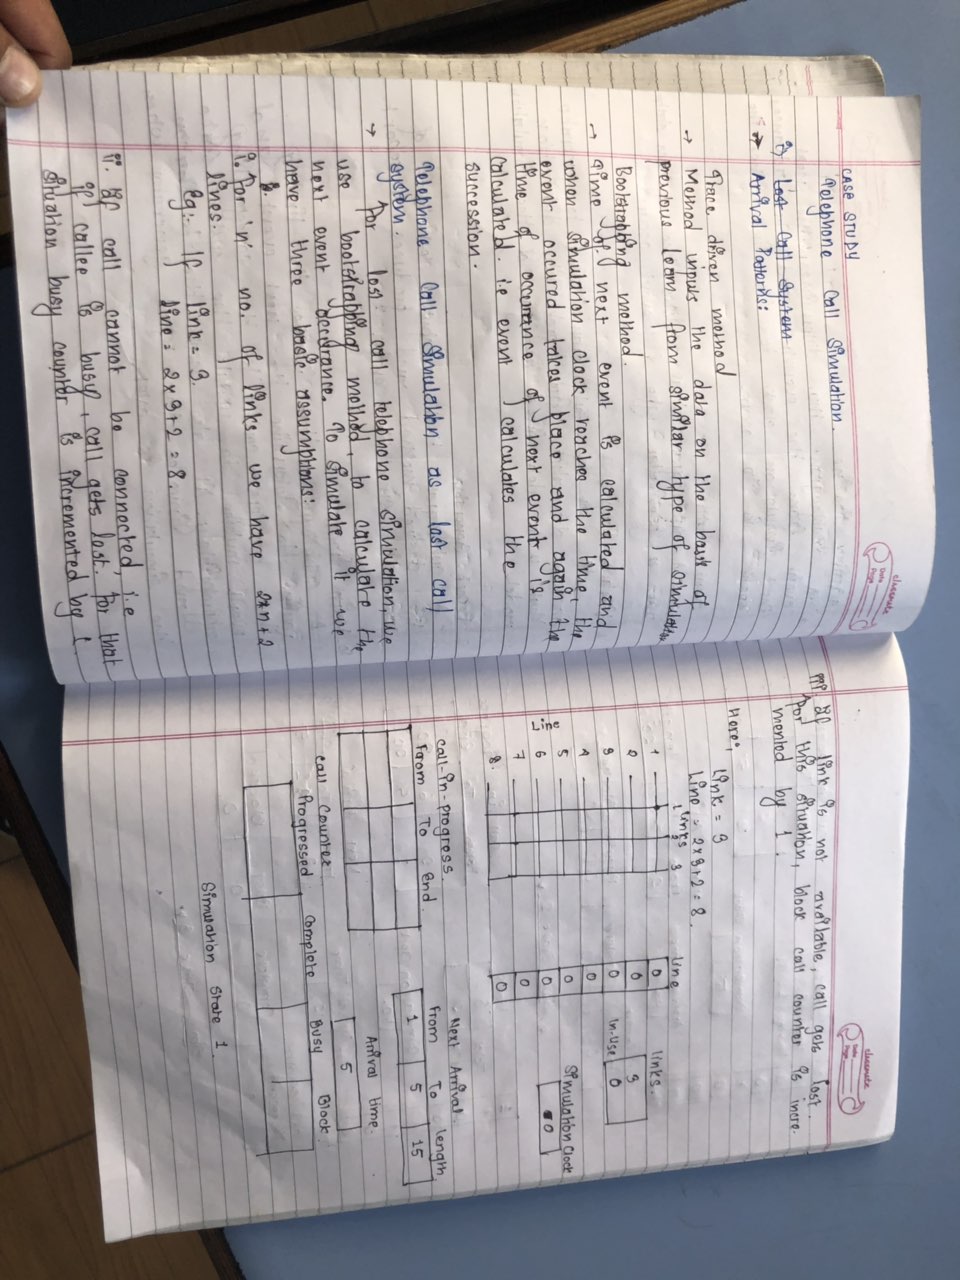 classmate
Date
Page
CASE STUDY
Telephone Call Simulation.
A) Lost Call System
→ Arrival Patterns:
Trace driven method
→ Method inputs the data on the basis of
previous learn from similar type of simulation
Bootstrapping method.
→ Time of next event is calculated and
when simulation clock reaches the time, the
event occured takes place and again the
time of occurrance of next event is
calculated. i.e event calculates the
succession.
Telephone Call Simulation as lost call
system.
→ For lost call telephone simulation, we
use bootstrapping method, to calculate the
next event occurance. To simulate it we
have three basic assumptions:
i. For 'n' no. of links we have 2xn+2
lines.
Eg: If link = 3.
line = 2x3+2 = 8.
ii. If call cannot be connected, i.e
if callee is busy, call gets lost. for that
situation busy counter is incremented by 1
classmate
Date
Page
iii) If link is not available, call gets lost.
For this situation, block call counter is incre-
mented by 1.
Here,
Link = 3
Line = 2x3+2 = 8.
Links 3
Line
1
2
3
4
5
6
7
8.
Line
0
0
0
0
0
0
0
0
links.
3
In-Use 0
Simulation Clock
00
Call-in-progress.
From To End.
Next Arrival
From To length
1 5 15
Arrival time.
5
Call Counter
Progressed Complete Busy Block
Simulation State 1.